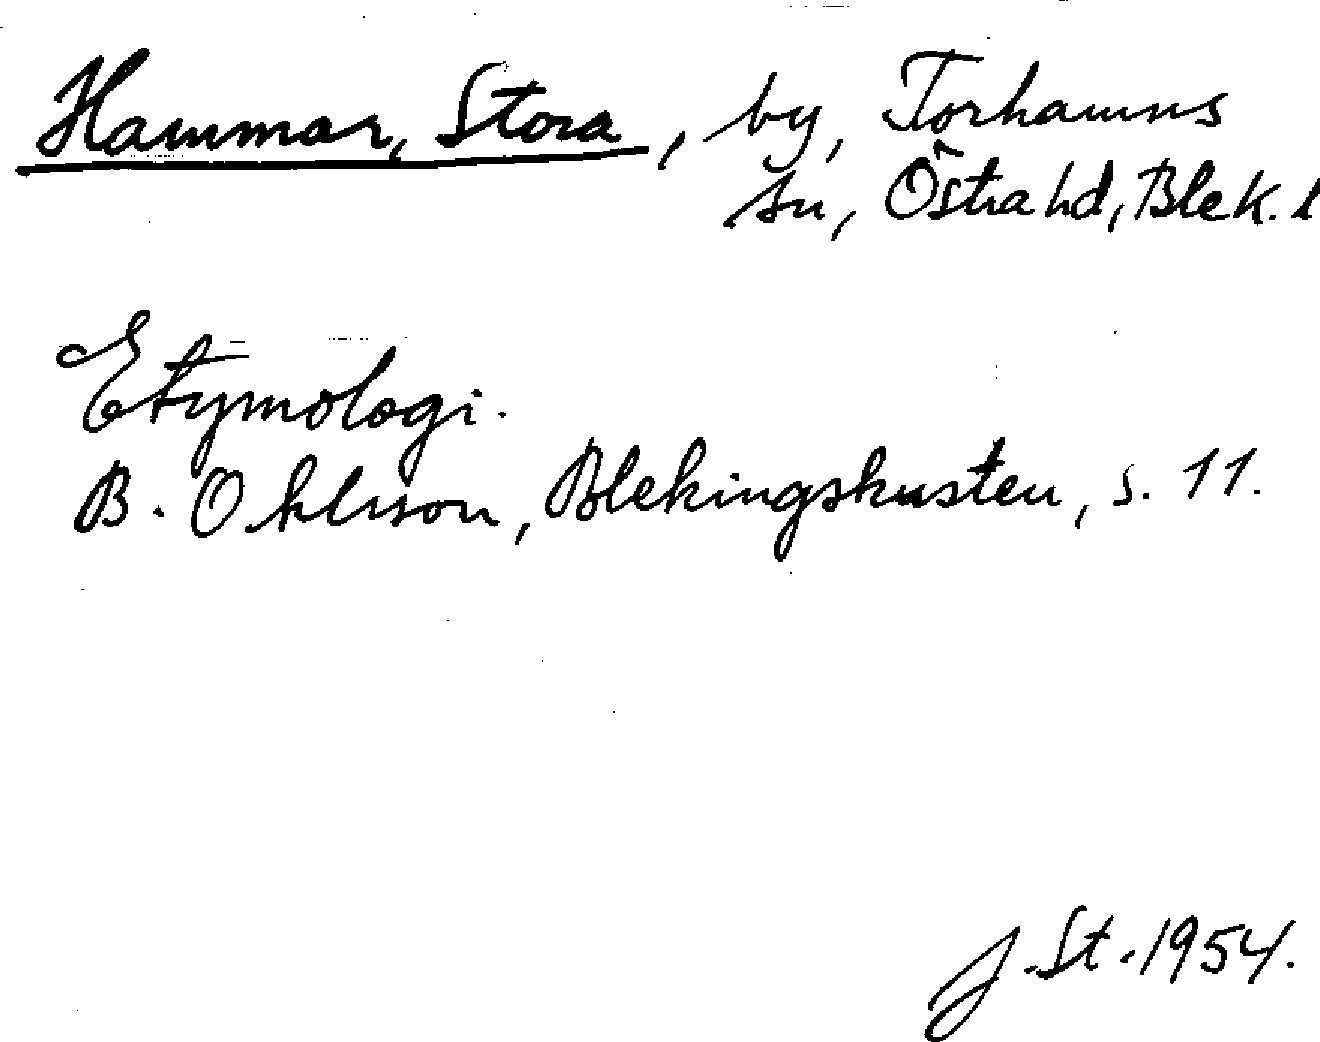 Hammar, Stora, by, Torhamns
sn, Östra hd, Blek. l
Etymologi.
B. Ohlsson, Blekingskusten, s. 11.
J. St. 1954.